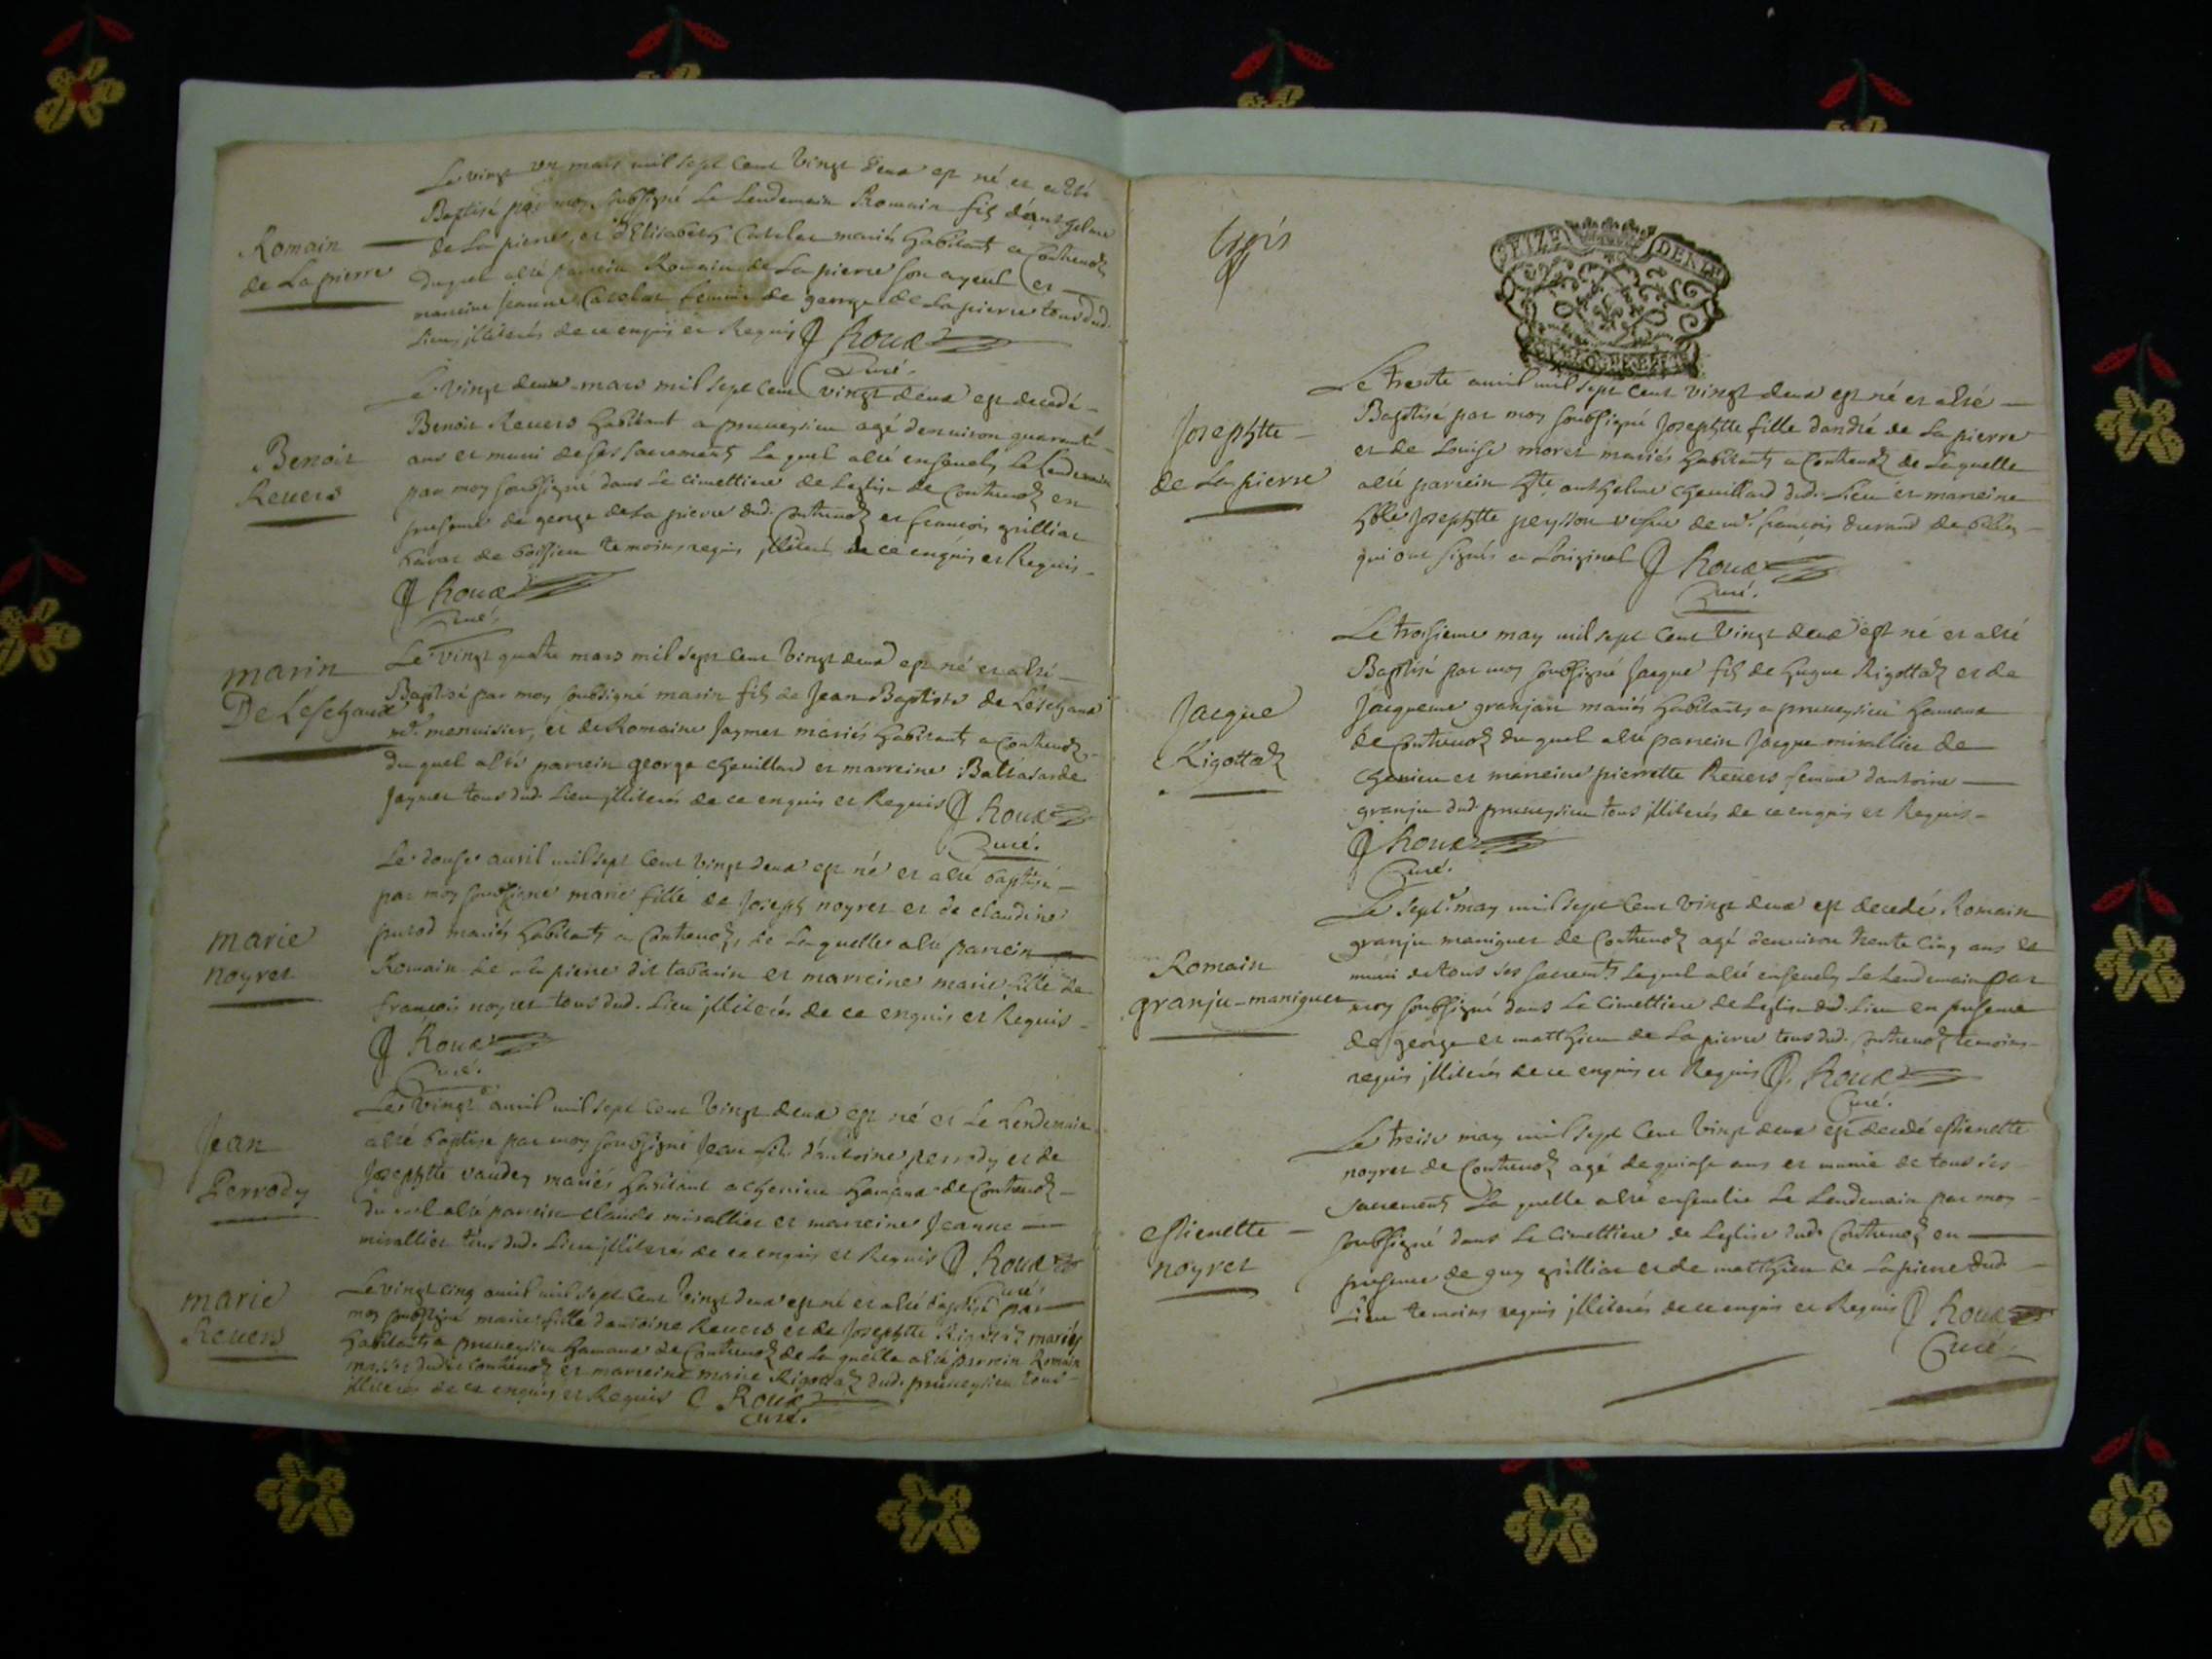 Le vingt un mars mil sept cent vingt deux est né et a été
Baptisé par moy soubsigné Le Lendemain Romain fils d'anthelme
Romain
de La pierre
de La pierre, et d'Elisabeth Catelar mariés habitants a Contrevoz
duquel a été parrein Romain de La pierre son ayeul et
marreine jeanne Catelar femme de george de La pierre tous dud.
Lieu jlliterés de ce enquis et Requis J Roux
Curé.
Le vingt deux mars mil sept cent vingt deux est decedé
Benoit
Revers
Benoit Revers habitant a pruneysieu agé denviron quarante
ans et muni de ses sacrements Le quel a été ensevely Le Lendemain
par moy soubsigné dans Le cimettiere de Leglise de Contrevoz en
presence de george de La pierre dud. Contrevoz et françois grilliat
de boissieu temoins requis jlliterés de ce enquis et Requis
J Roux
Curé.
marin
De Leschaux
Le vingt quatre mars mil sept cent vingt deux est né et a été
Baptisé par moy soubsigné marin fils de Jean Baptiste de Leschaux
me. menuisier, et de Romaine Jaymet mariés habitants a Contrevoz
du quel a été parrein george chevillard et marreine Baltasarde
Jaymet tous dud. Lieu jlliterés de ce enquis et Requis J Roux
Curé.
Le douse avril mil sept cent vingt deux est né et a été baptisé
marie
noyret
par moy soubsigné marie fille de Joseph noyret et de claudine
purod mariés habitants a Contrevoz, de La quelle a été parrein
Romain de La pierre dit tabarin et marreine marie fille de
françois noyret tous dud. Lieu jlliterés de ce enquis et Requis
J Roux
Curé.
Jean
Perrody
Le vingt avril mil sept cent vingt deux est né et Le Lendemain
a été baptisé par moy soubsigné Jean fils d'antoine perrody et de
Josephtte vaudey mariés habitant a chenieu hameau de Contrevoz
du quel a été parrein claude mirallier et marreine Jeanne
mirallier tous dud. Lieu jlliterés de ce enquis et Requis J Roux
Curé
marie
Revers
Le vingt cinq avril mil sept cent vingt deux est né et a été baptisé par
moy soubsigné marie fille dantoine Revers et de Josephtte Rigottaz mariés
habitants a pruneysieu hameau de Contrevoz de La quelle a été parrein Romain
dudit Contrevoz et marreine marie Rigottaz dud. pruneysieu tous
jlliterés de ce enquis et Requis J Roux
Curé.
trois
SEIZE DENIE
Josephtte
de La pierre
Le trente avril mil sept cent vingt deux est né et a été
Baptisé par moy soubsigné Josephtte fille dandré de La pierre
et de Louise moret mariés habitants a Contrevoz de Laquelle
a été parrein hte. anthelme chevillard dud. Lieu et marreine
hble Josephtte peysson vefve de mr. françois durand de belley
qui ont signés a Loriginal J Roux
Curé.
Jacque
Rigottaz
Le troisieme may mil sept cent vingt deux est né et a été
Baptisé par moy soubsigné Jacque fils de hugue Rigottaz et de
Jacqueme granjan mariés habitants a pruneysieu hameau
de Contrevoz du quel a été parrein Jacque mirallier de
chenieu et marreine pierrette Revers femme dantoine
granju dud. pruneysieu tous jlliterés de ce enquis et Requis
J Roux
Curé.
Romain
granju-maniguet
Le sept. may mil sept cent vingt deux est decedé Romain
granju maniguet de Contrevoz agé denviron trente cinq ans et
muni de tous ses sacremts. Lequel a été ensevely Le Lendemain par
moy soubsigné dans Le cimettiere de Leglise dud. Lieu en presence
de george et matthieu de La pierre tous dud. Contrevoz temoins
requis jlliterés de ce enquis et Requis J. Roux
Curé.
estienette
noyret
Le treise may mil sept cent vingt deux est decedé estienette
noyret de Contrevoz agé de quinse ans et munie de tous ses
sacrements La quelle a été ensevelie Le Lendemain par moy
soubsigné dans Le cimettiere de Leglise dud. Contrevoz en
presence de guy grilliat et de matthieu de La pierre dud.
Lieu temoins requis jlliterés de ce enquis et Requis J Roux
Curé